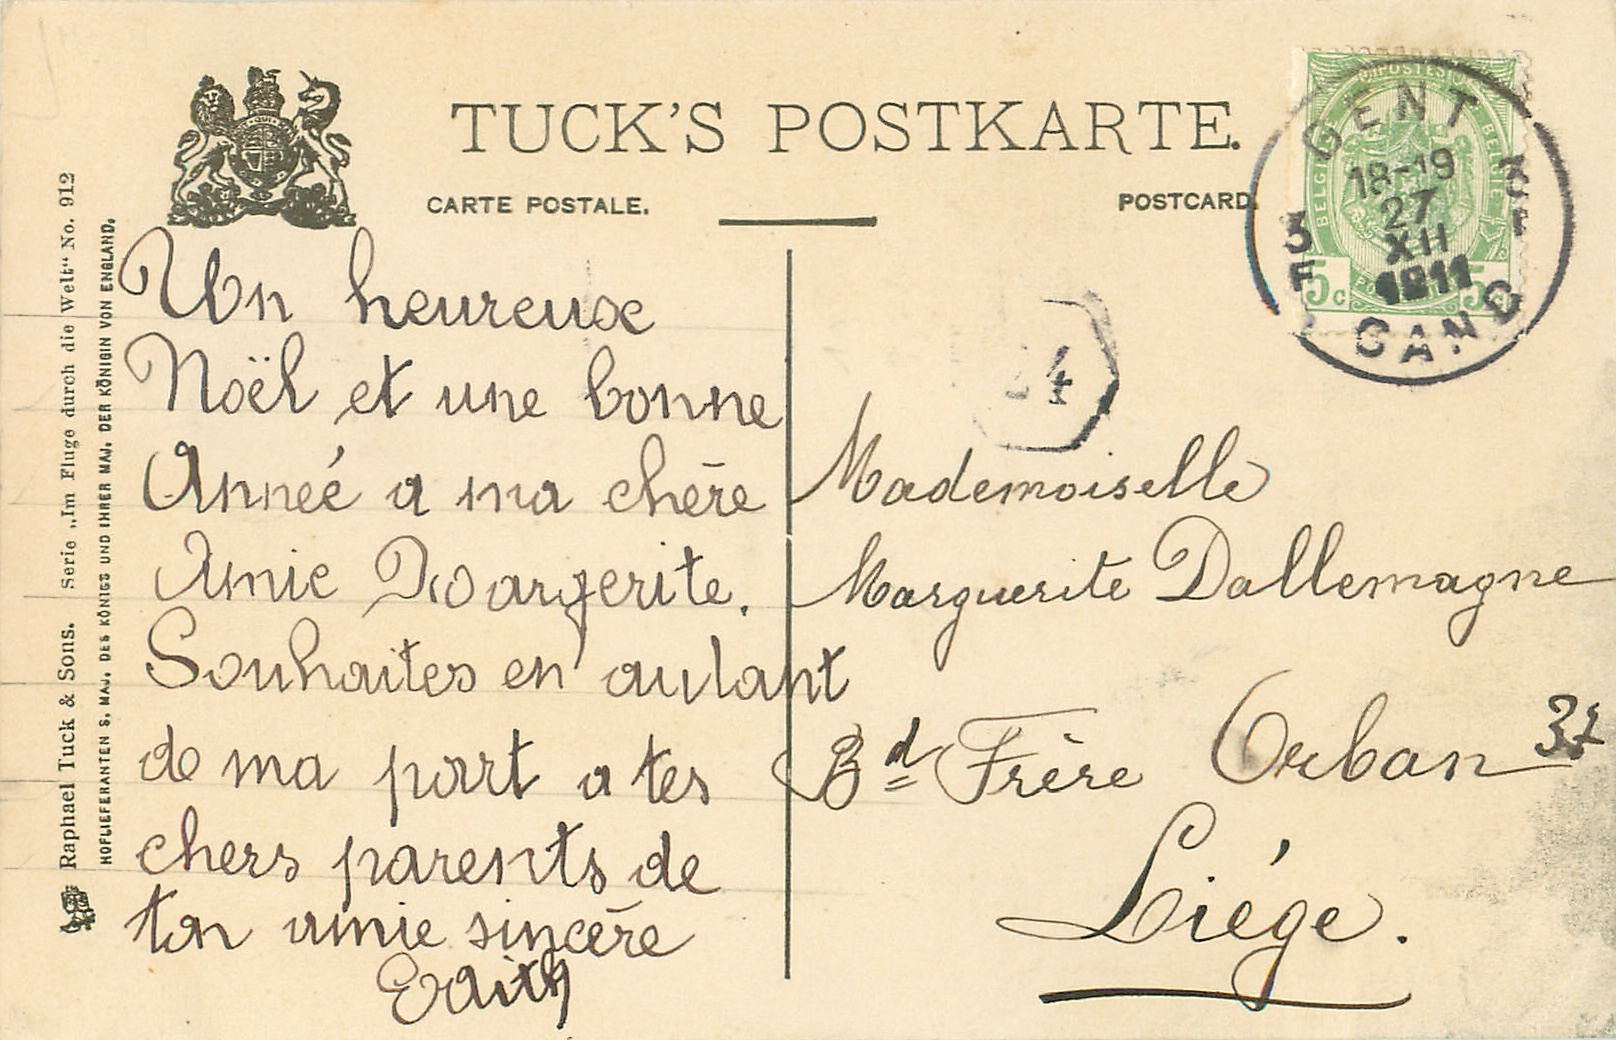 TUCK'S POSTKARTE.
CARTE POSTALE.
POSTCARD.
Raphael Tuck & Sons. Serie „Im Fluge durch die Welt“ No. 912
HOFLIEFERANTEN S. MAJ. DES KÖNIGS UND IHRER MAJ. DER KÖNIGIN VON ENGLAND.
Un heureux
Noël et une bonne
Année a ma chère
Amie Margerite.
Souhaites en autant
de ma part a tes
chers parents de
ton amie sincère
Edith
GENT
18-19
27
XII
1911
GAND
3 F
3 F
POSTES
BELGIQUE
BELGIE
5c
5c
24
Mademoiselle
Marguerite Dallemagne
Bd Frère Orban 37
Liége.